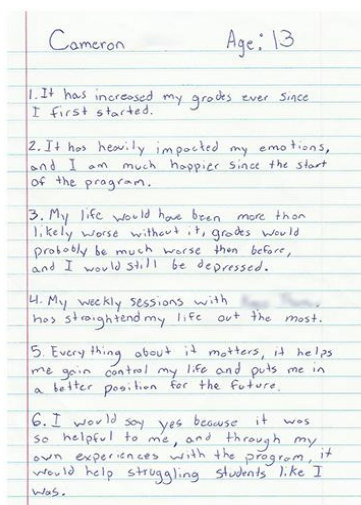 Cameron Age: 13
1. It has increased my grades ever since
I first started.
2. It has heavily impacted my emotions,
and I am much happier since the start
of the program.
3. My life would have been more than
likely worse without it, grades would
probably be much worse then before,
and I would still be depressed.
4. My weekly sessions with
has straightend my life out the most.
5. Everything about it matters, it helps
me gain control my life and puts me in
a better position for the future.
6. I would say yes because it was
so helpful to me, and through my
own experiences with the program, it
would help struggling students like I
was.